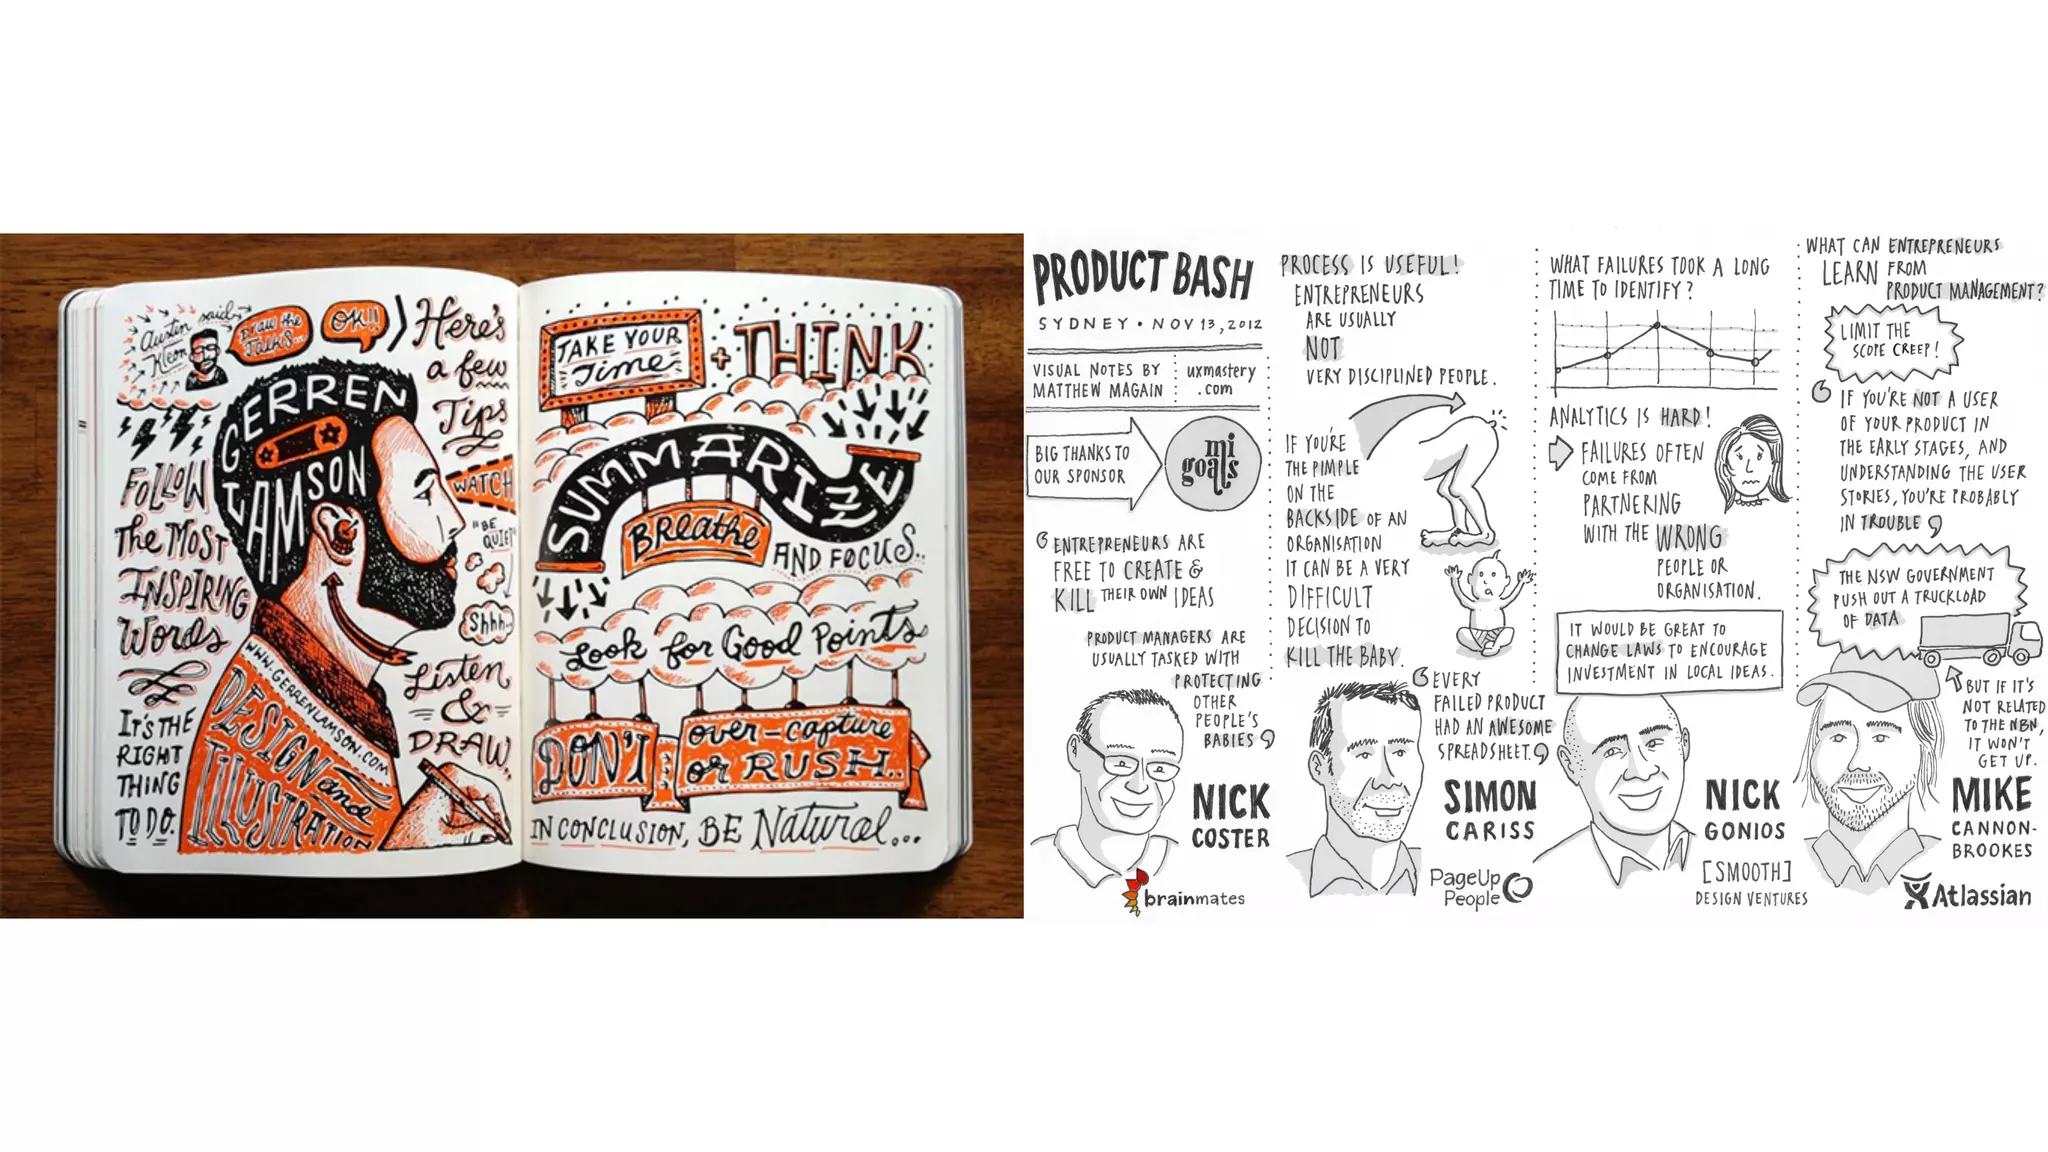 Austin said
Kleon
Draw the
Talks...
OK!!
Here's
a few
Tips
GERREN
LAMSON
WATCH
"BE
QUIET"
Shhh..
FOLLOW
The MOST
INSPIRING
Words
IT'S THE
RIGHT
THING
TO DO.
WWW.GERRENLAMSON.COM
DESIGN and
ILLUSTRATION
Listen
&
DRAW..
TAKE YOUR
Time
+ THINK
SUMMARIZE
Breathe
AND FOCUS..
Look for Good Points
DON'T
over-capture
or RUSH..
IN CONCLUSION, BE Natural...
PRODUCT BASH
SYDNEY • NOV 13, 2012
VISUAL NOTES BY
MATTHEW MAGAIN
uxmastery
.com
BIG THANKS TO
OUR SPONSOR
mi
goals
ENTREPRENEURS ARE
FREE TO CREATE &
KILL THEIR OWN IDEAS
PRODUCT MANAGERS ARE
USUALLY TASKED WITH
PROTECTING
OTHER
PEOPLE'S
BABIES
NICK
COSTER
brainmates
PROCESS IS USEFUL!
ENTREPRENEURS
ARE USUALLY
NOT
VERY DISCIPLINED PEOPLE.
IF YOU'RE
THE PIMPLE
ON THE
BACKSIDE OF AN
ORGANISATION
IT CAN BE A VERY
DIFFICULT
DECISION TO
KILL THE BABY.
EVERY
FAILED PRODUCT
HAD AN AWESOME
SPREADSHEET.
SIMON
CARISS
PageUp
People
WHAT FAILURES TOOK A LONG
TIME TO IDENTIFY?
ANALYTICS IS HARD!
FAILURES OFTEN
COME FROM
PARTNERING
WITH THE WRONG
PEOPLE OR
ORGANISATION.
IT WOULD BE GREAT TO
CHANGE LAWS TO ENCOURAGE
INVESTMENT IN LOCAL IDEAS.
NICK
GONIOS
[SMOOTH]
DESIGN VENTURES
WHAT CAN ENTREPRENEURS
LEARN FROM
PRODUCT MANAGEMENT?
LIMIT THE
SCOPE CREEP!
IF YOU'RE NOT A USER
OF YOUR PRODUCT IN
THE EARLY STAGES, AND
UNDERSTANDING THE USER
STORIES, YOU'RE PROBABLY
IN TROUBLE
THE NSW GOVERNMENT
PUSH OUT A TRUCKLOAD
OF DATA
BUT IF IT'S
NOT RELATED
TO THE NBN,
IT WON'T
GET UP.
MIKE
CANNON-
BROOKES
Atlassian